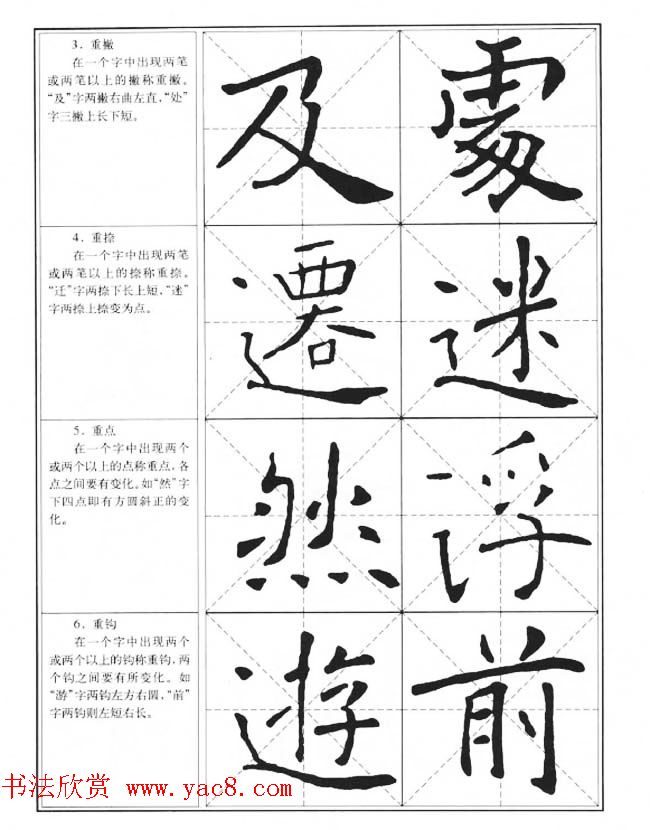 3．重撇
在一个字中出现两笔
或两笔以上的撇称重撇。
“及”字两撇右曲左直，“处”
字三撇上长下短。
及 處
4．重捺
在一个字中出现两笔
或两笔以上的捺称重捺。
“迁”字两捺下长上短，“迷”
字两捺上捺变为点。
遷 迷
5．重点
在一个字中出现两个
或两个以上的点称重点，各
点之间要有变化。如“然”字
下四点即有方圆斜正的变
化。
然 浮
6．重钩
在一个字中出现两个
或两个以上的钩称重钩，两
个钩之间要有所变化。如
“游”字两钩左方右圆，“前”
字两钩则左短右长。
遊 前
书法欣赏 www.yac8.com